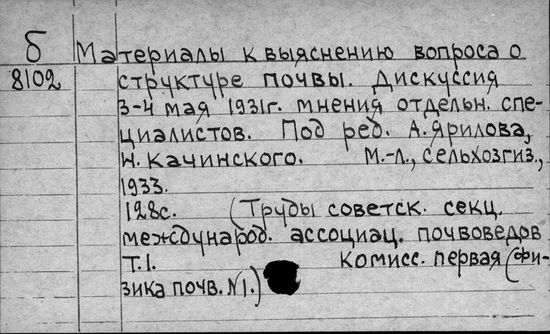 б Материалы к выяснению вопроса о
8102 структуре почвы. Дискуссия
3-4 мая 1931г. мнения отдельн. спе-
циалистов. Под ред. А. Ярилова,
Н. Качинского. М.-Л., Сельхозгиз.,
1933.
128с. (Труды советск. секц.
международ. ассоциац. почвоведов
Т.1. Комисс. первая (фи-
зика почв. №1.)